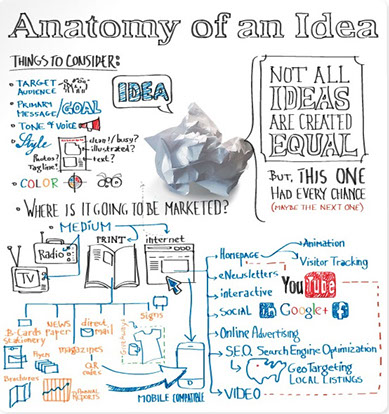 Anatomy of an Idea
THINGS TO CONSIDER:
TARGET
AUDIENCE
PRIMARY
MESSAGE/GOAL
TONE & VOICE
Style
clean!/busy?
illustrated?
text?
Photos?
Tagline?
COLOR
IDEA
NOT ALL
IDEAS
ARE CREATED
EQUAL
BUT, THIS ONE
HAD EVERY CHANCE
(MAYBE THE NEXT ONE)
WHERE IS IT GOING TO BE MARKETED?
MEDIUM
Radio
TV
PRINT
internet
B-Cards
Stationery
Flyers
Brochures
NEWS
PAPER
magazines
ANNUAL
REPORTS
direct
MAIL
QR
CODES
Signs
Giveaways
MOBILE COMPATIBLE
Homepage
Animation
Visitor Tracking
eNewsletters
interactive
YouTube
SOCIAL
Google+
in
Online Advertising
S.E.O. Search Engine Optimization
GeoTargeting
LOCAL LISTINGS
VIDEO